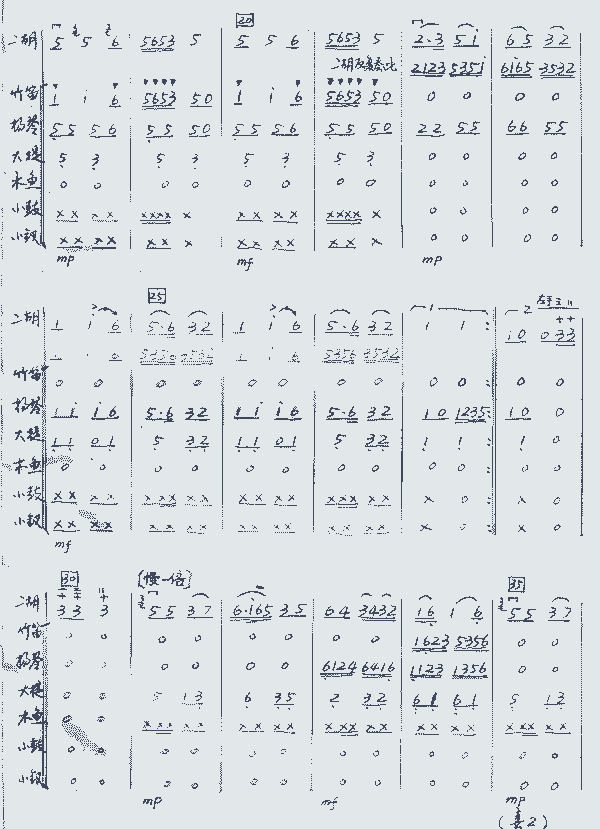 20
二胡 5 5 6 5653 5 5 5 6 5653 5 2·3 5 i 6 5 3 2
二胡反复奏此 2123 535i 6165 3532
竹笛 1 i 6 5653 50 1 i 6 5653 50 0 0 0 0
扬琴 55 56 55 50 55 56 55 50 22 55 66 55
大提 5 3 5 3 5 3 5 3 0 0 0 0
木鱼 0 0 0 0 0 0 0 0 0 0 0 0
小鼓 xx xx xxxx x xx xx xxxx x 0 0 0 0
小钗 xx xx xx x xx xx xx x 0 0 0 0
mp mf mp
25
二胡 1 i 6 5·6 32 1 i 6 5·6 32 1 1 : 10 033
1 i 6 5356 3532
竹笛 0 0 0 0 0 0 0 0 0 0 : 0 0
扬琴 11 i6 5·6 32 11 i6 5·6 32 10 1235: 10 0
大提 11 01 5 32 11 01 5 32 1 1 : 1 0
木鱼 0 0 0 0 0 0 0 0 0 0 : 0 0
小鼓 xx xx xxx xx xx xx xxx xx x 0 : x 0
小钗 xx xx xx xx xx xx xx xx x 0 : x 0
mf
30 (慢一倍) 35
二胡 33 3 55 37 6·165 35 64 3432 16 1 6 55 37
竹笛 0 0 0 0 0 0 0 0 1623 5356 0 0
扬琴 0 0 0 0 0 0 6124 6416 1123 1356 0 0
大提 0 0 5 13 6 35 2 32 61 61 5 13
木鱼 0 0 xxx xx x xx xx x xxx xx xx xx x xxx xx
小鼓 0 0 0 0 0 0 0 0 0 0 0 0
小钗 0 0 0 0 0 0 0 0 0 0 0 0
mp mf mp